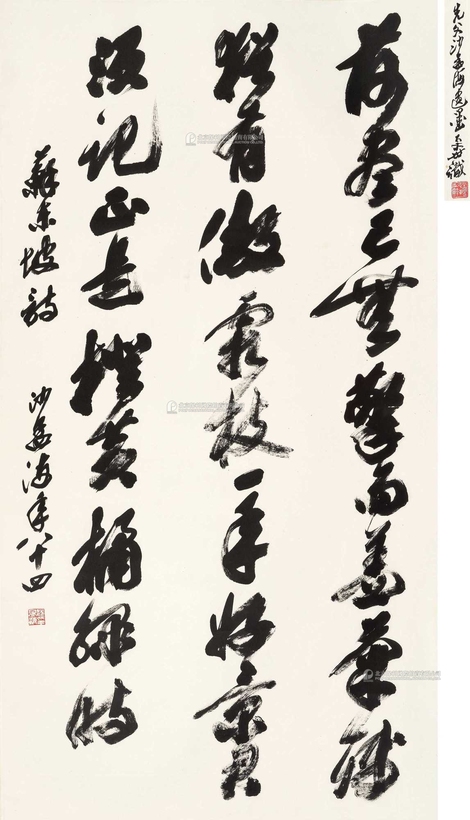 先父沙孟海遺墨
荷盡已無擎雨蓋菊殘
猶有傲霜枝一年好景君
須記正是橙黃橘綠時
蘇東坡詩
沙孟海年八十四